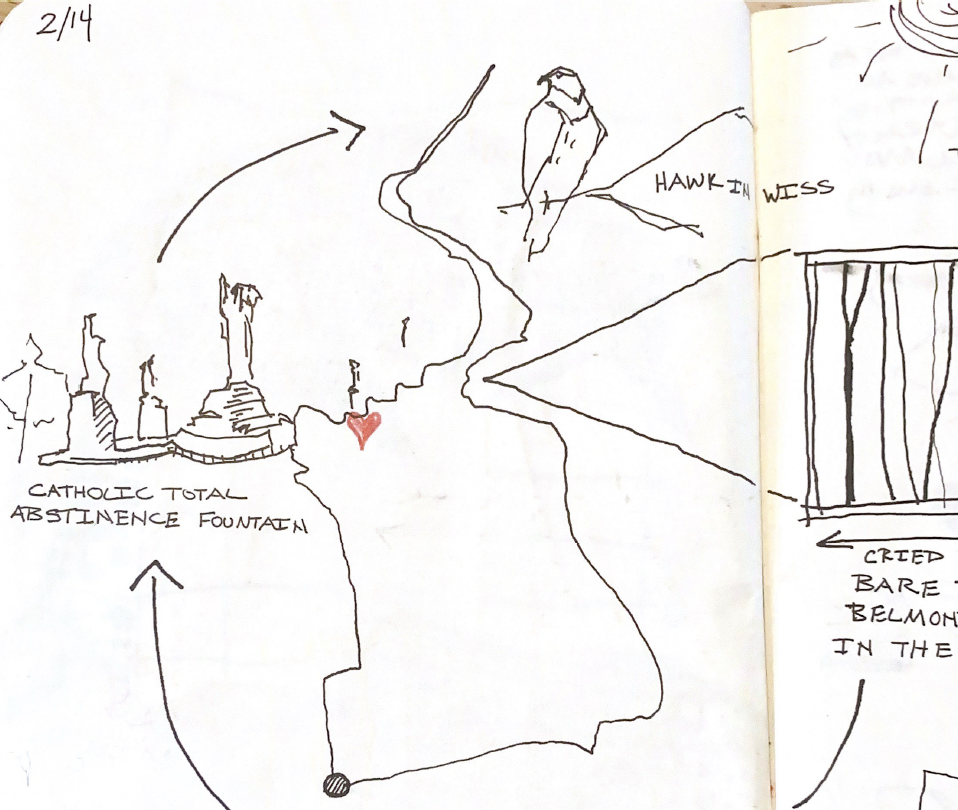 2/14
HAWK IN WISS
CATHOLIC TOTAL
ABSTINENCE FOUNTAIN
CRIED
BARE
BELMON
IN THE